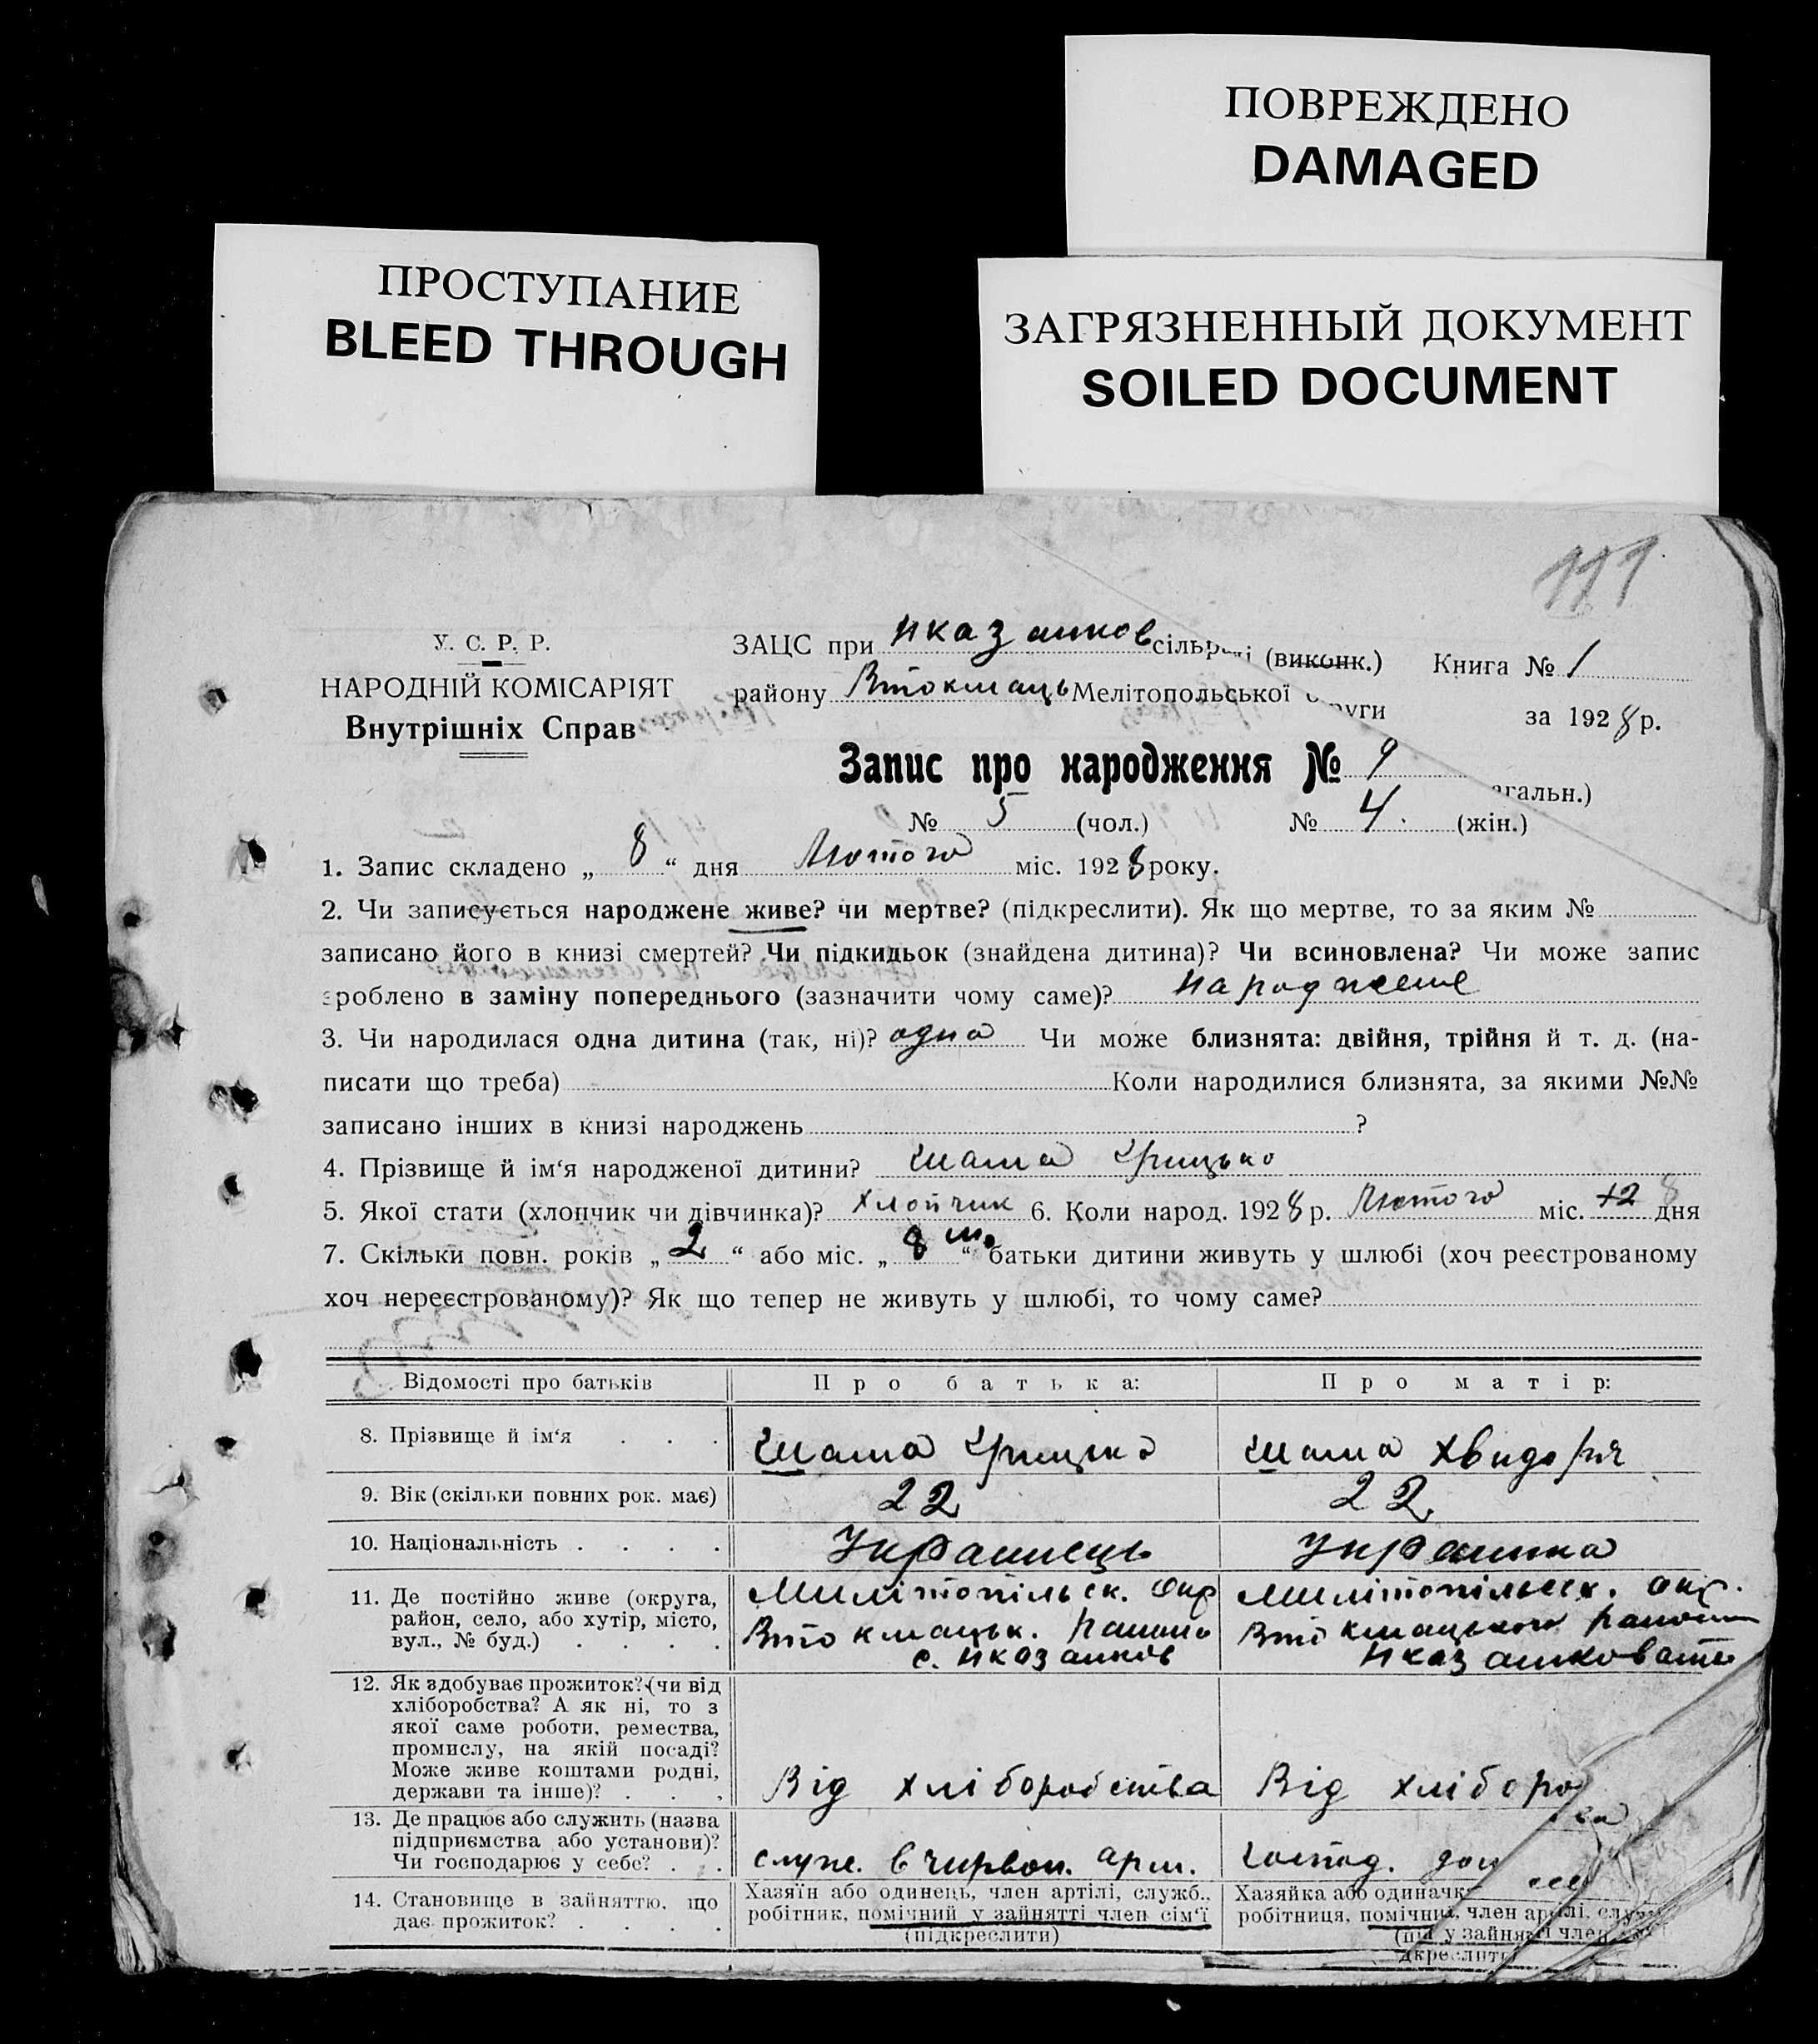 ПОВРЕЖДЕНО
DAMAGED
ПРОСТУПАНИЕ
BLEED THROUGH
ЗАГРЯЗНЕННЫЙ ДОКУМЕНТ
SOILED DOCUMENT
111
У. С. Р. Р.
НАРОДНІЙ КОМІСАРІЯТ
Внутрішніх Справ
ЗАЦС при (виконк.) Книга № 1
району Втокмаць Мелітопольської
за 1928 р.
Запис про народження № 9
№ 5 (чол.) № 4. (жін.)
1. Запис складено „ 8 “ дня Лютого міс. 1928 року.
2. Чи записується народжене живе? чи мертве? (підкреслити). Як що мертве, то за яким №
записано його в книзі смертей? Чи підкидьок (знайдена дитина)? Чи всиновлена? Чи може запис
зроблено в заміну попереднього (зазначити чому саме)?
3. Чи народилася одна дитина (так, ні)? одна Чи може близнята: двійня, трійня й т. д. (на-
писати що треба) Коли народилися близнята, за якими №№
записано інших в книзі народжень ?
4. Прізвище й ім‘я народженої дитини? Шата Грицько
5. Якої стати (хлопчик чи дівчинка)? хлопчик 6. Коли народ. 1928 р. Лютого міс. дня
7. Скільки повн. років „ 2 “ або міс. „ 8 “ батьки дитини живуть у шлюбі (хоч реєстрованому
хоч нереєстрованому)? Як що тепер не живуть у шлюбі, то чому саме?
Відомості про батьків Про батька: Про матір:
8. Прізвище й ім‘я . . . Шата Грицько Шата Хвидоря
9. Вік (скільки повних рок. має) 22 22
10. Національність . . . . Українець Українка
11. Де постійно живе (округа, Милітопільск. окр Милітопільск. окр.
район, село, або хутір, місто, Втокмацьк. району Втокмацького района
вул., № буд.) . . . .
12. Як здобуває прожиток? (чи від
хліборобства? А як ні, то з
якої саме роботи, ремества,
промислу, на якій посаді?
Може живе коштами родні,
держави та інше)? . . . Від хліборобства Від хліборо
13. Де працює або служить (назва
підприємства або установи)?
Чи господарює у себе? . . служ. в червон. арм. господ.
14. Становище в зайняттю, що
дає прожиток? . . . .
Хазяїн або одинець, член артілі, служб.,
робітник, помічний у зайнятті член сім‘ї
(підкреслити)
Хазяйка або одиначка
робітниця, помічниц. член артілі,
у зайнятті член